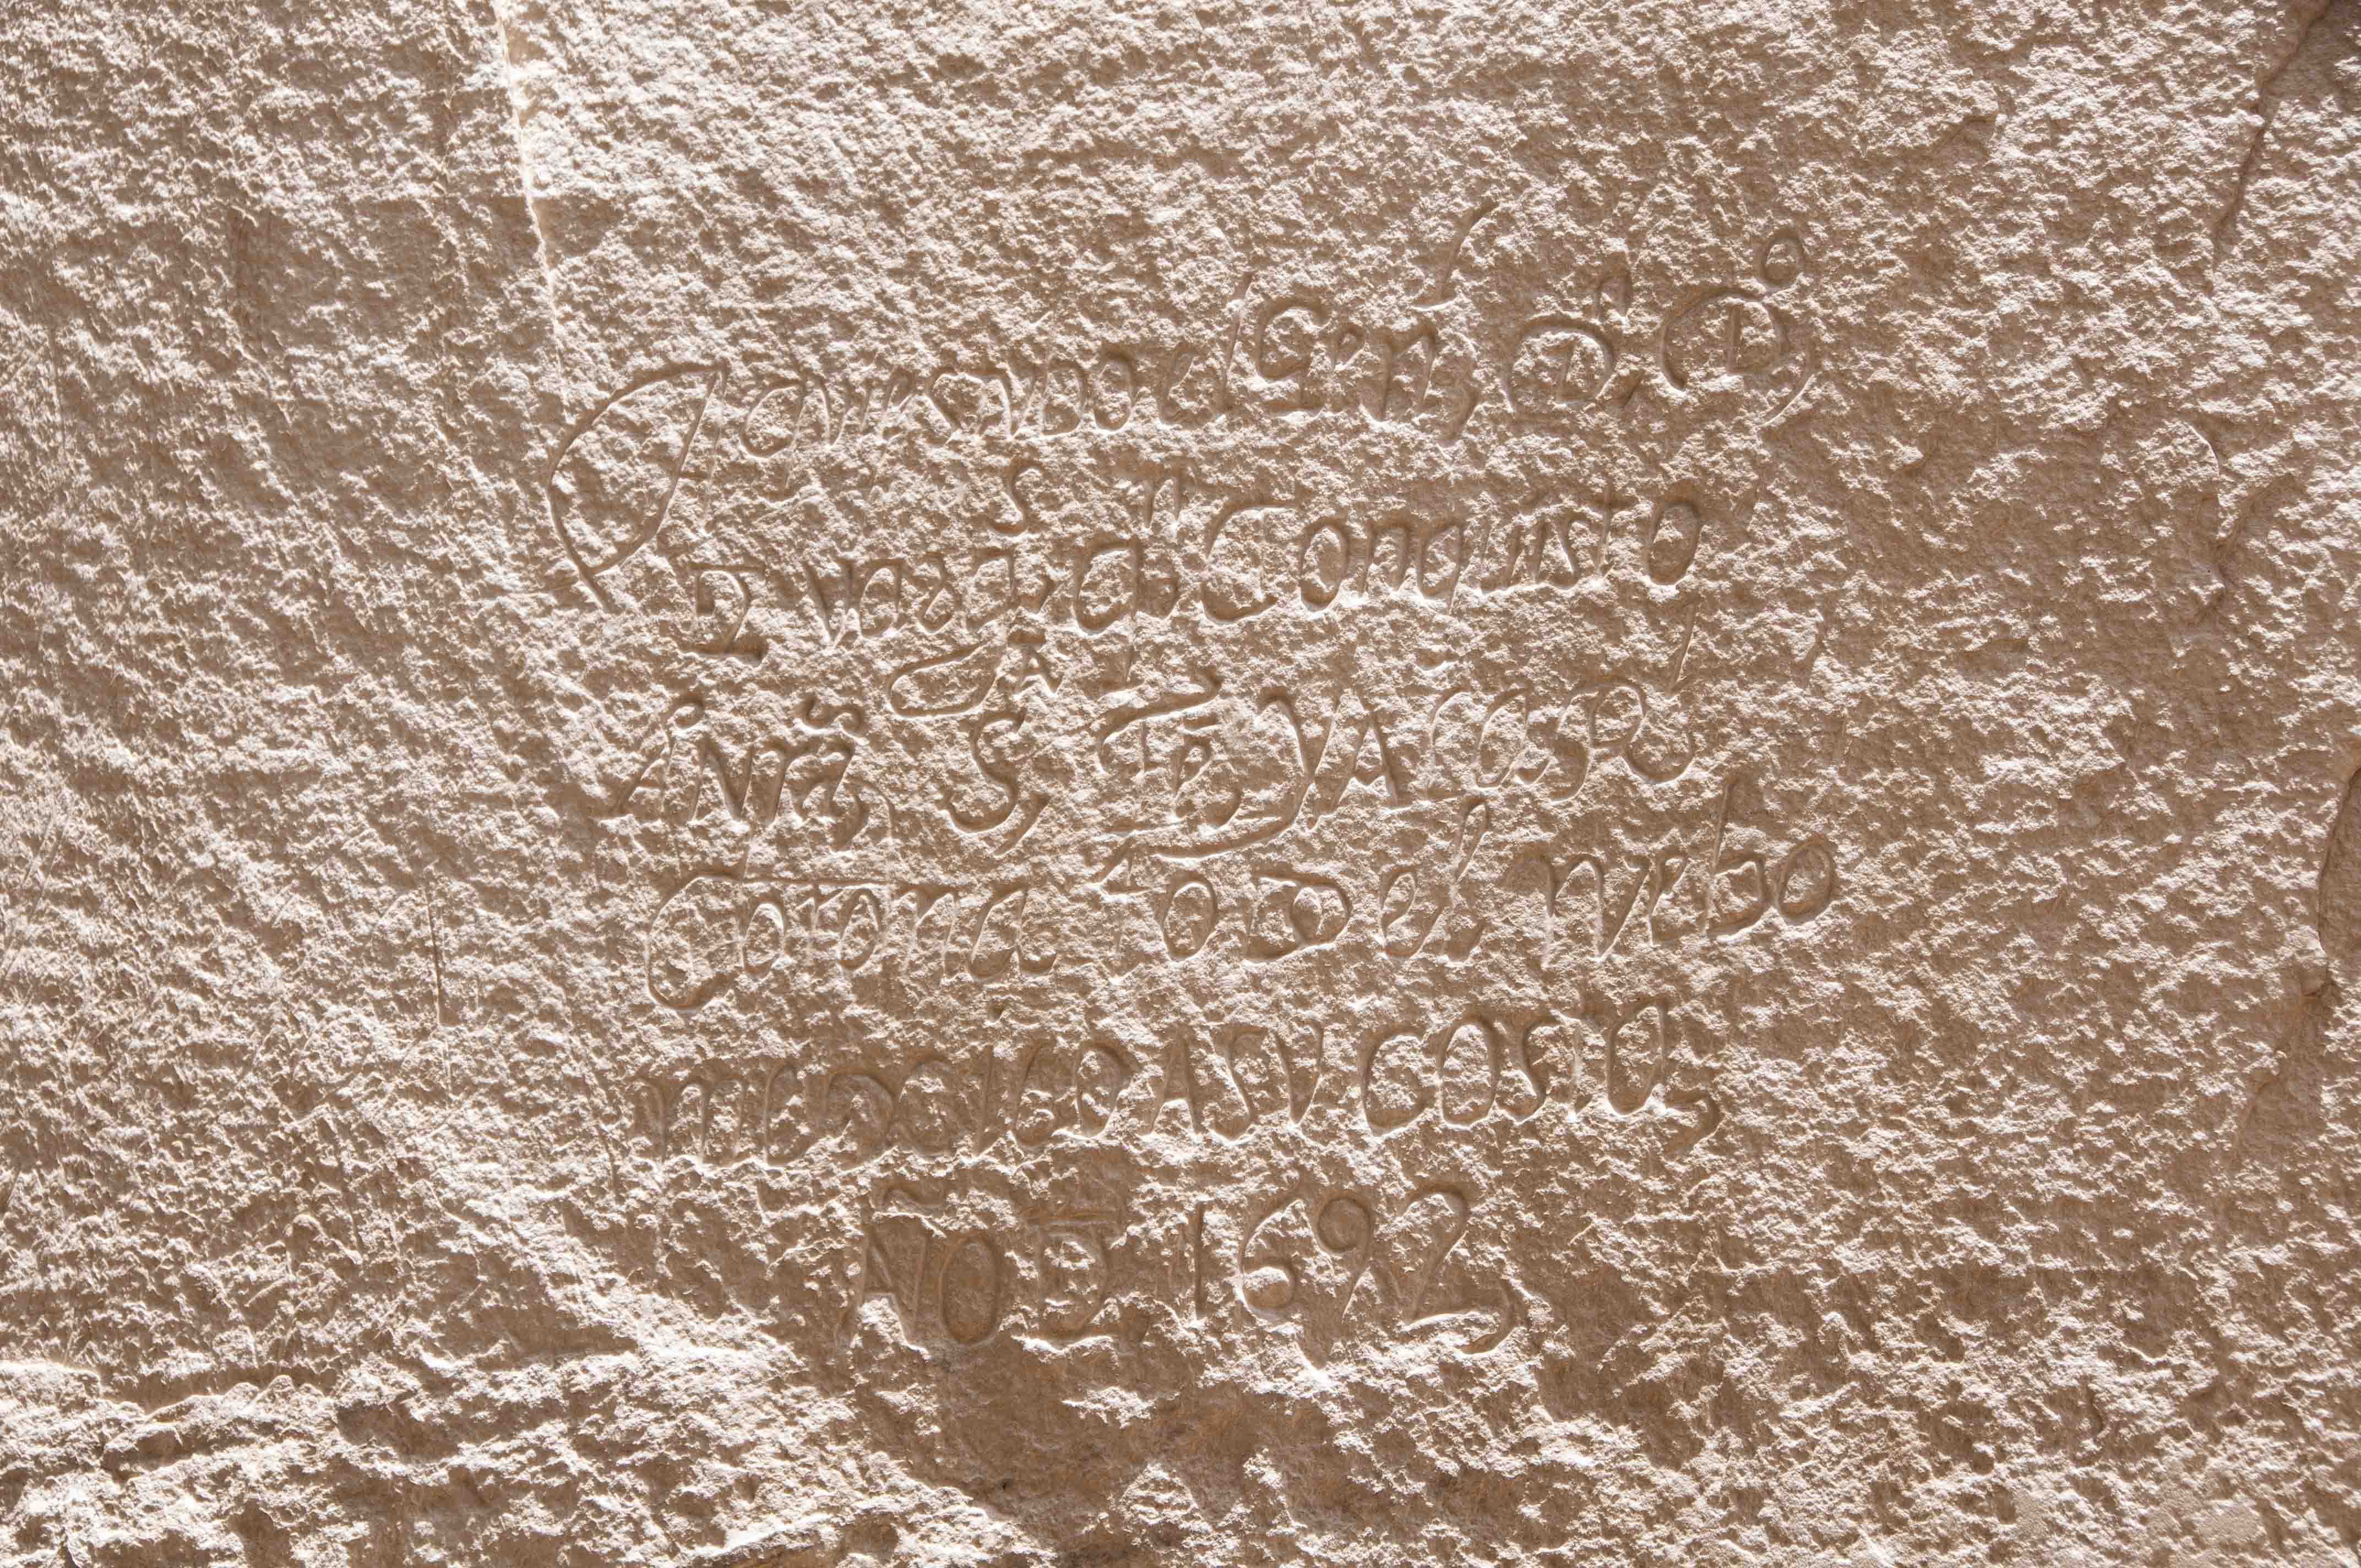 Aqui estuvo el Genl. Dn. Do.
De Vargas qn Conquisto
a Nra. Sta. Fe Y A la Real
Corona todo el nuebo
mexico A SU COSTA,
AÑO DE 1692,